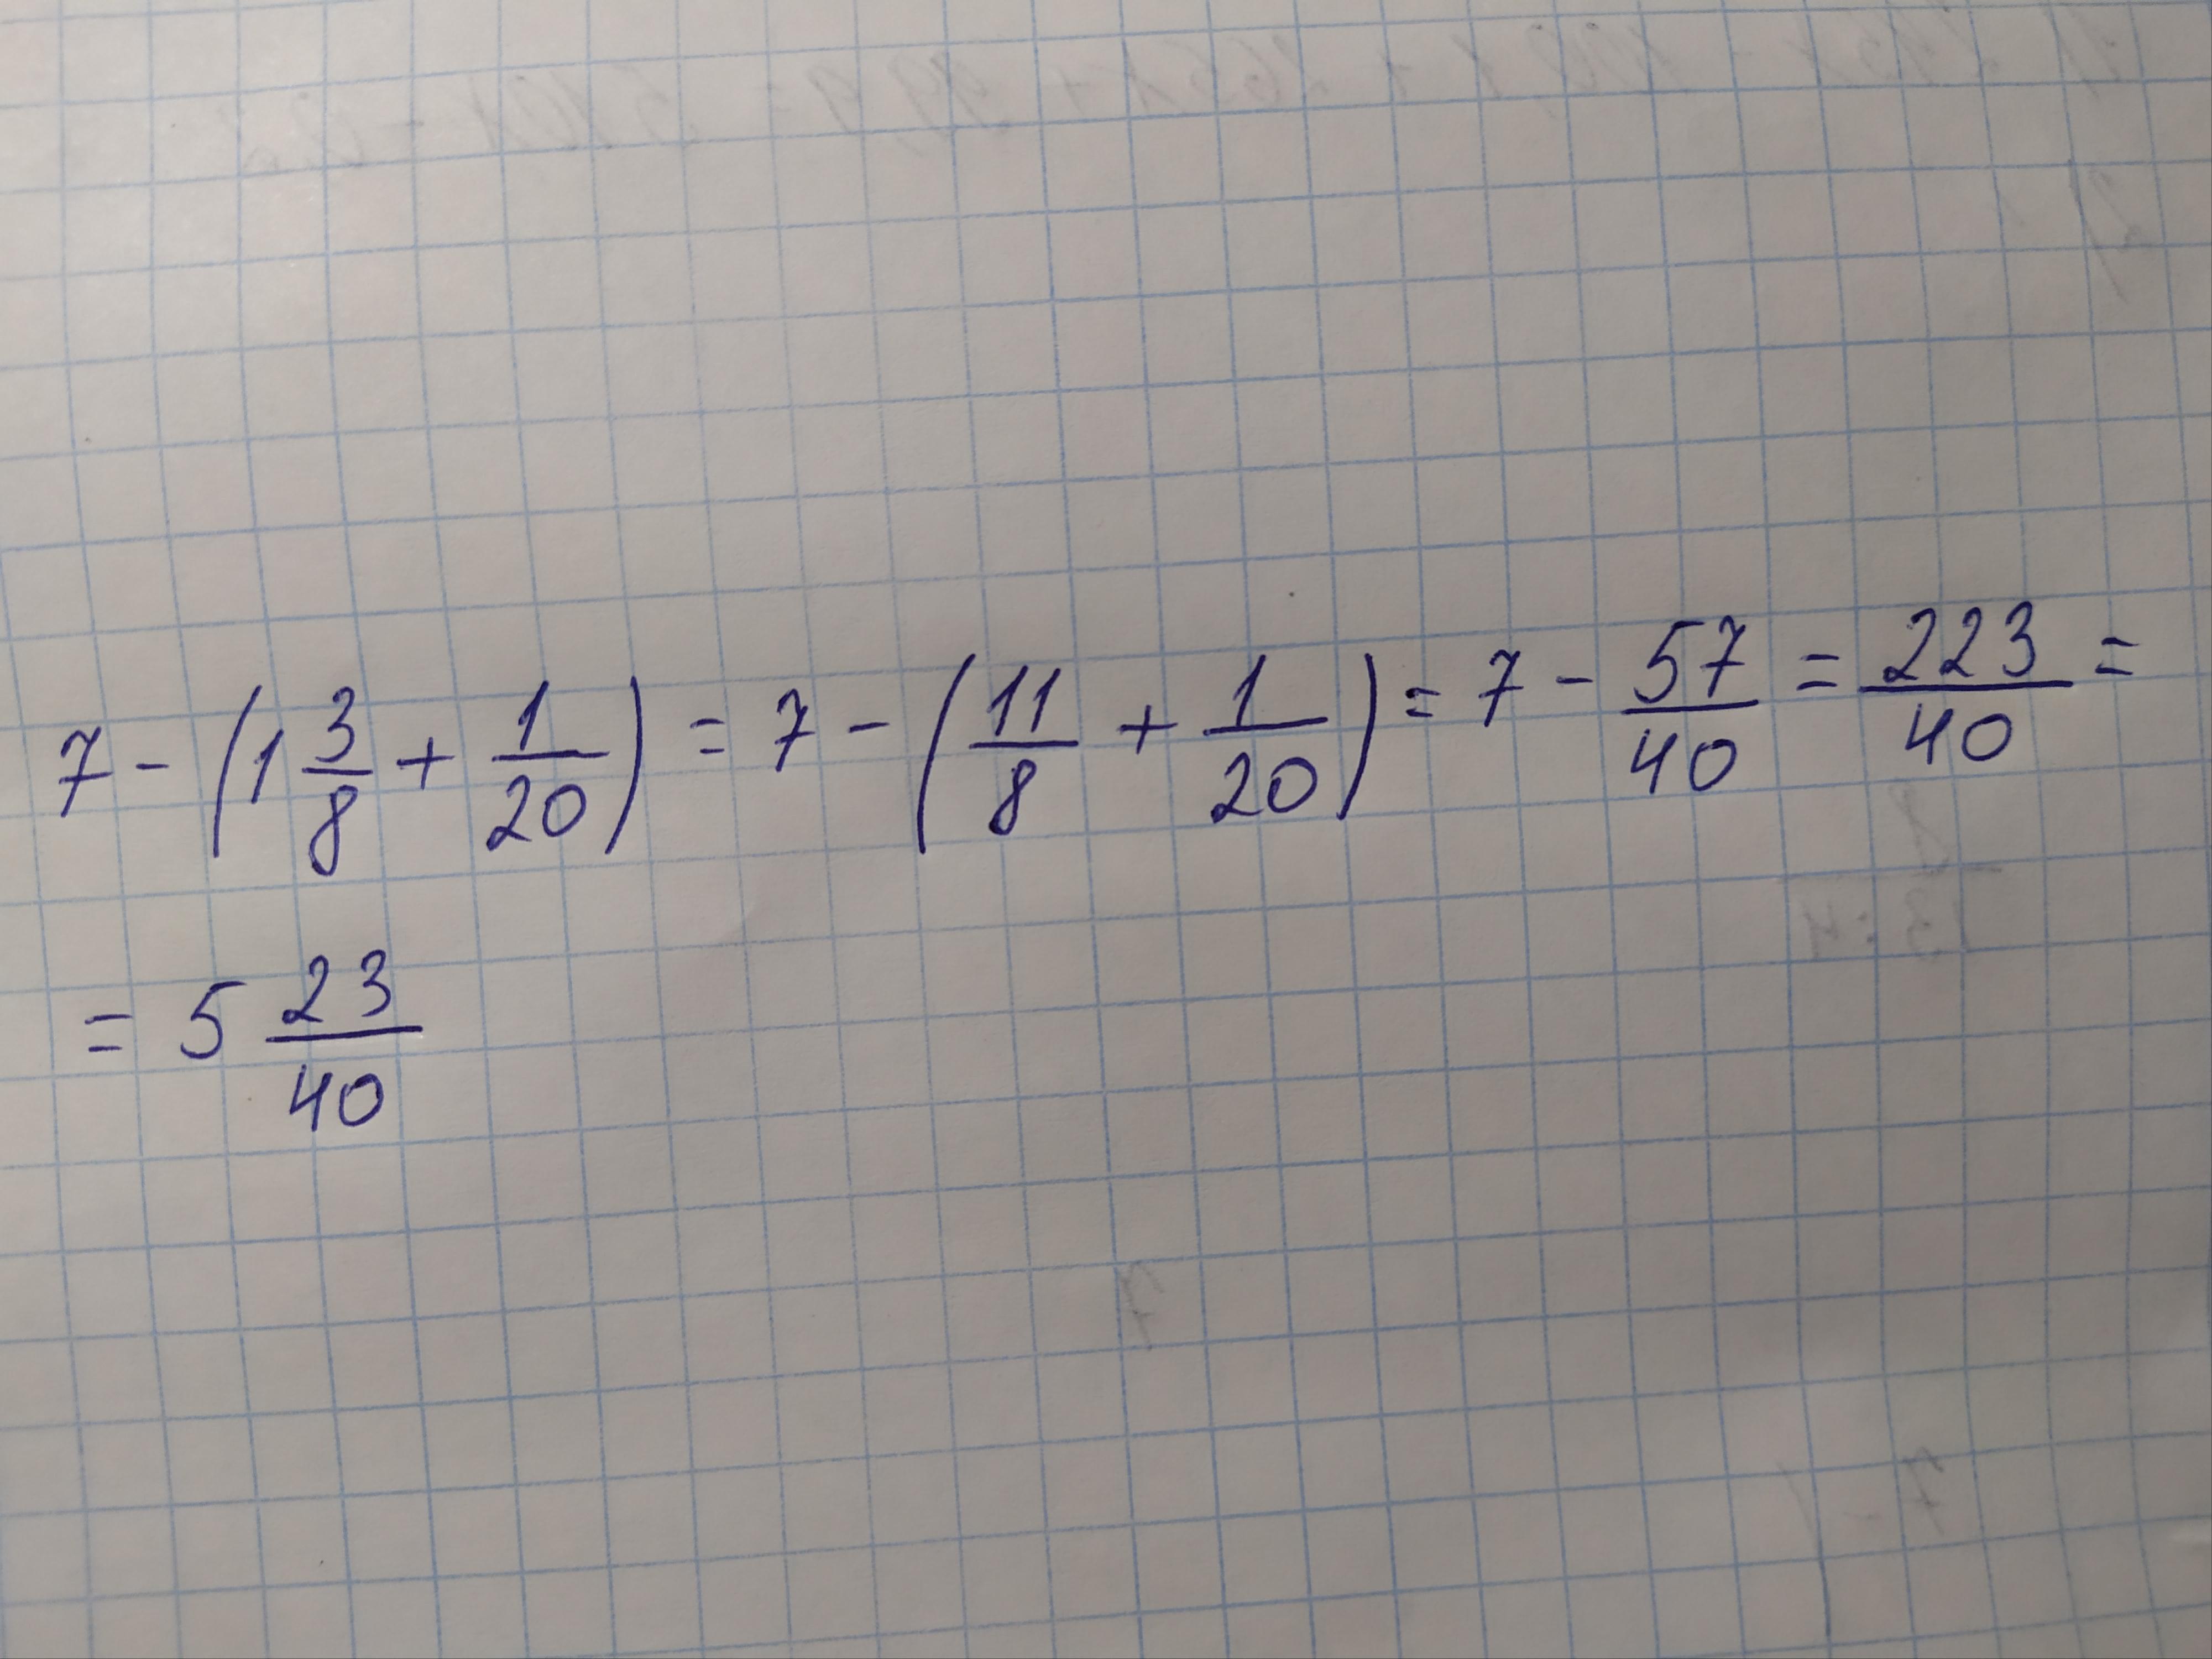 7 - (1 3/8 + 1/20) = 7 - (11/8 + 1/20) = 7 - 57/40 = 223/40 =
= 5 23/40